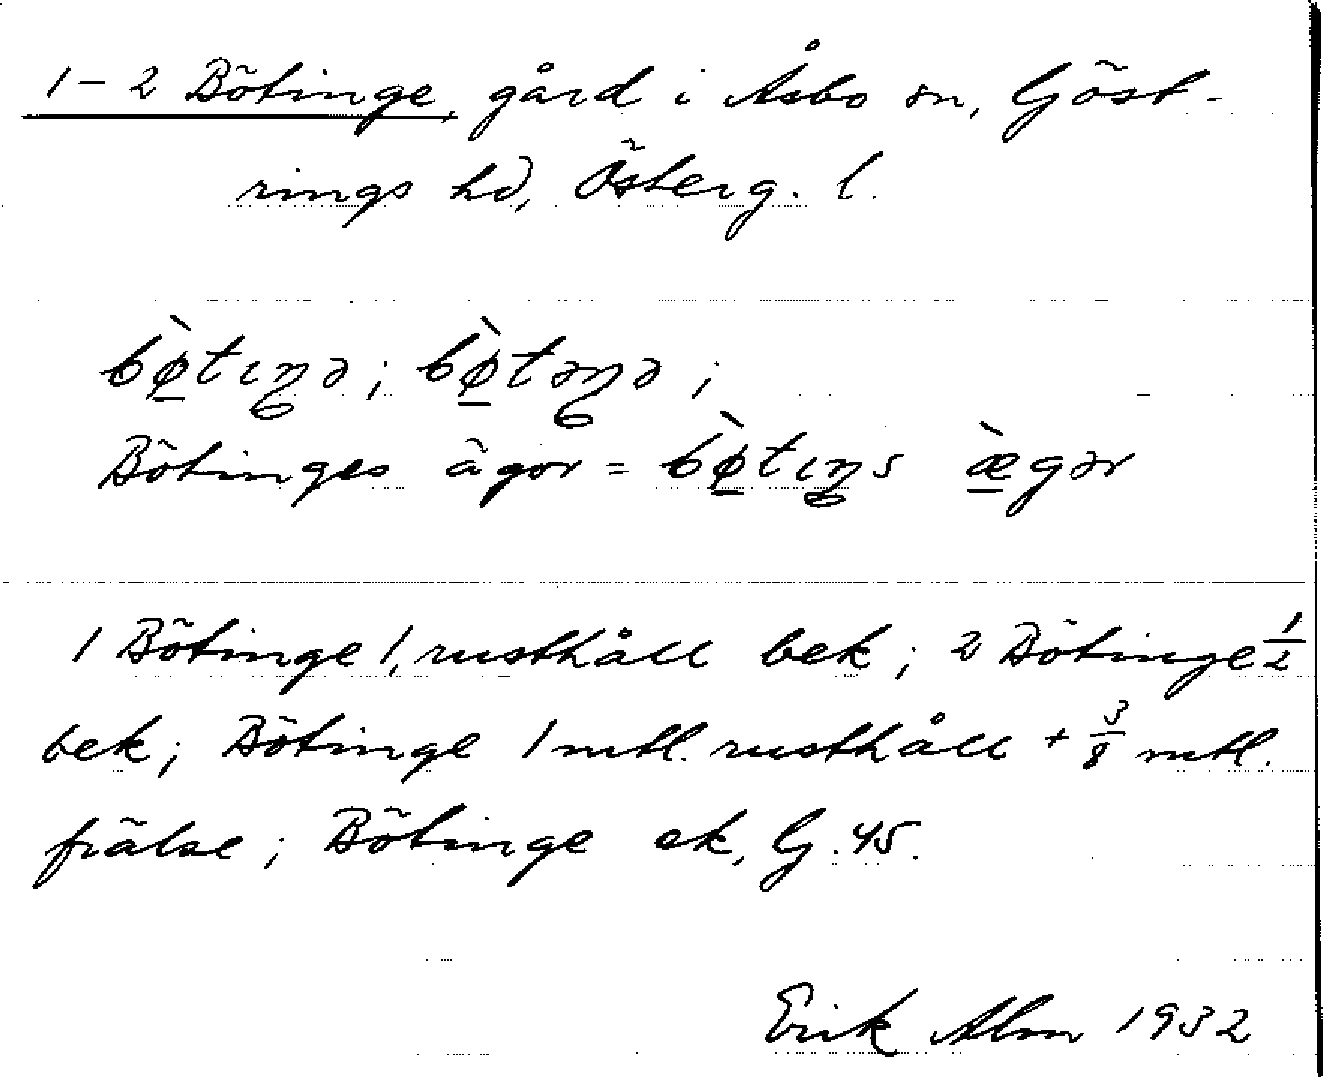 1-2 Bötinge, gård i Åsbo sn, Göst-
rings hd, Österg. l.
bø̠̀tıŋə; bø̠̀təŋə;
Bötinges ägor = bø̠̀tıŋs æ̠̀gər
1 Bötinge 1, rusthåll bek; 2 Bötinge ½
bek; Bötinge 1 mtl. rusthåll + ⅜ mtl.
frälse; Bötinge ek, G. 45.
Erik Alm 1932